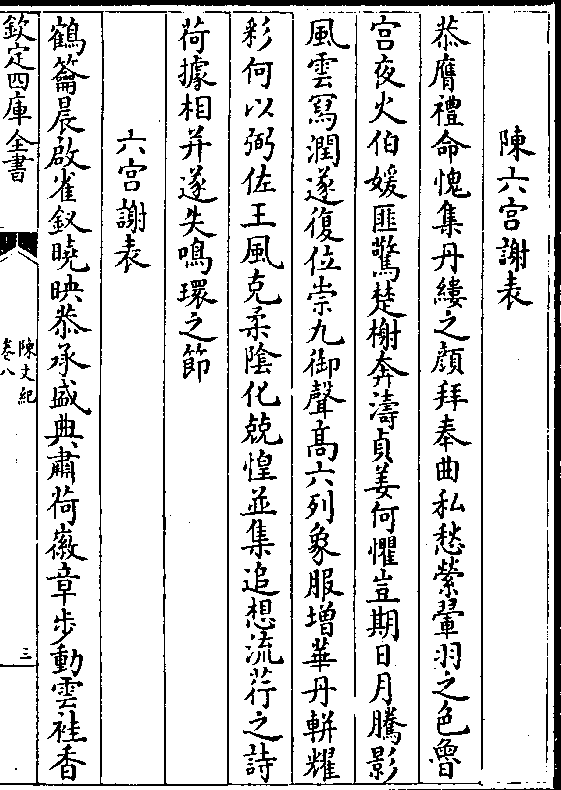 陳六宮謝表
恭膺禮命愧集丹縷之顔拜奉曲私愁縈翬羽之色魯
宫夜火伯媛匪驚楚榭奔濤貞姜何懼豈期日月騰影
風雲冩潤遂復位崇九御聲高六列象服增華丹輧耀
彩何以弼佐王風克柔陰化兢惶並集追想流荇之詩
荷據相并遂失鳴環之節
六宫謝表
鶴籥晨啟雀釵曉映恭承盛典肅荷徽章步動雲袿香
欽定四庫全書
陳文紀
卷八
三